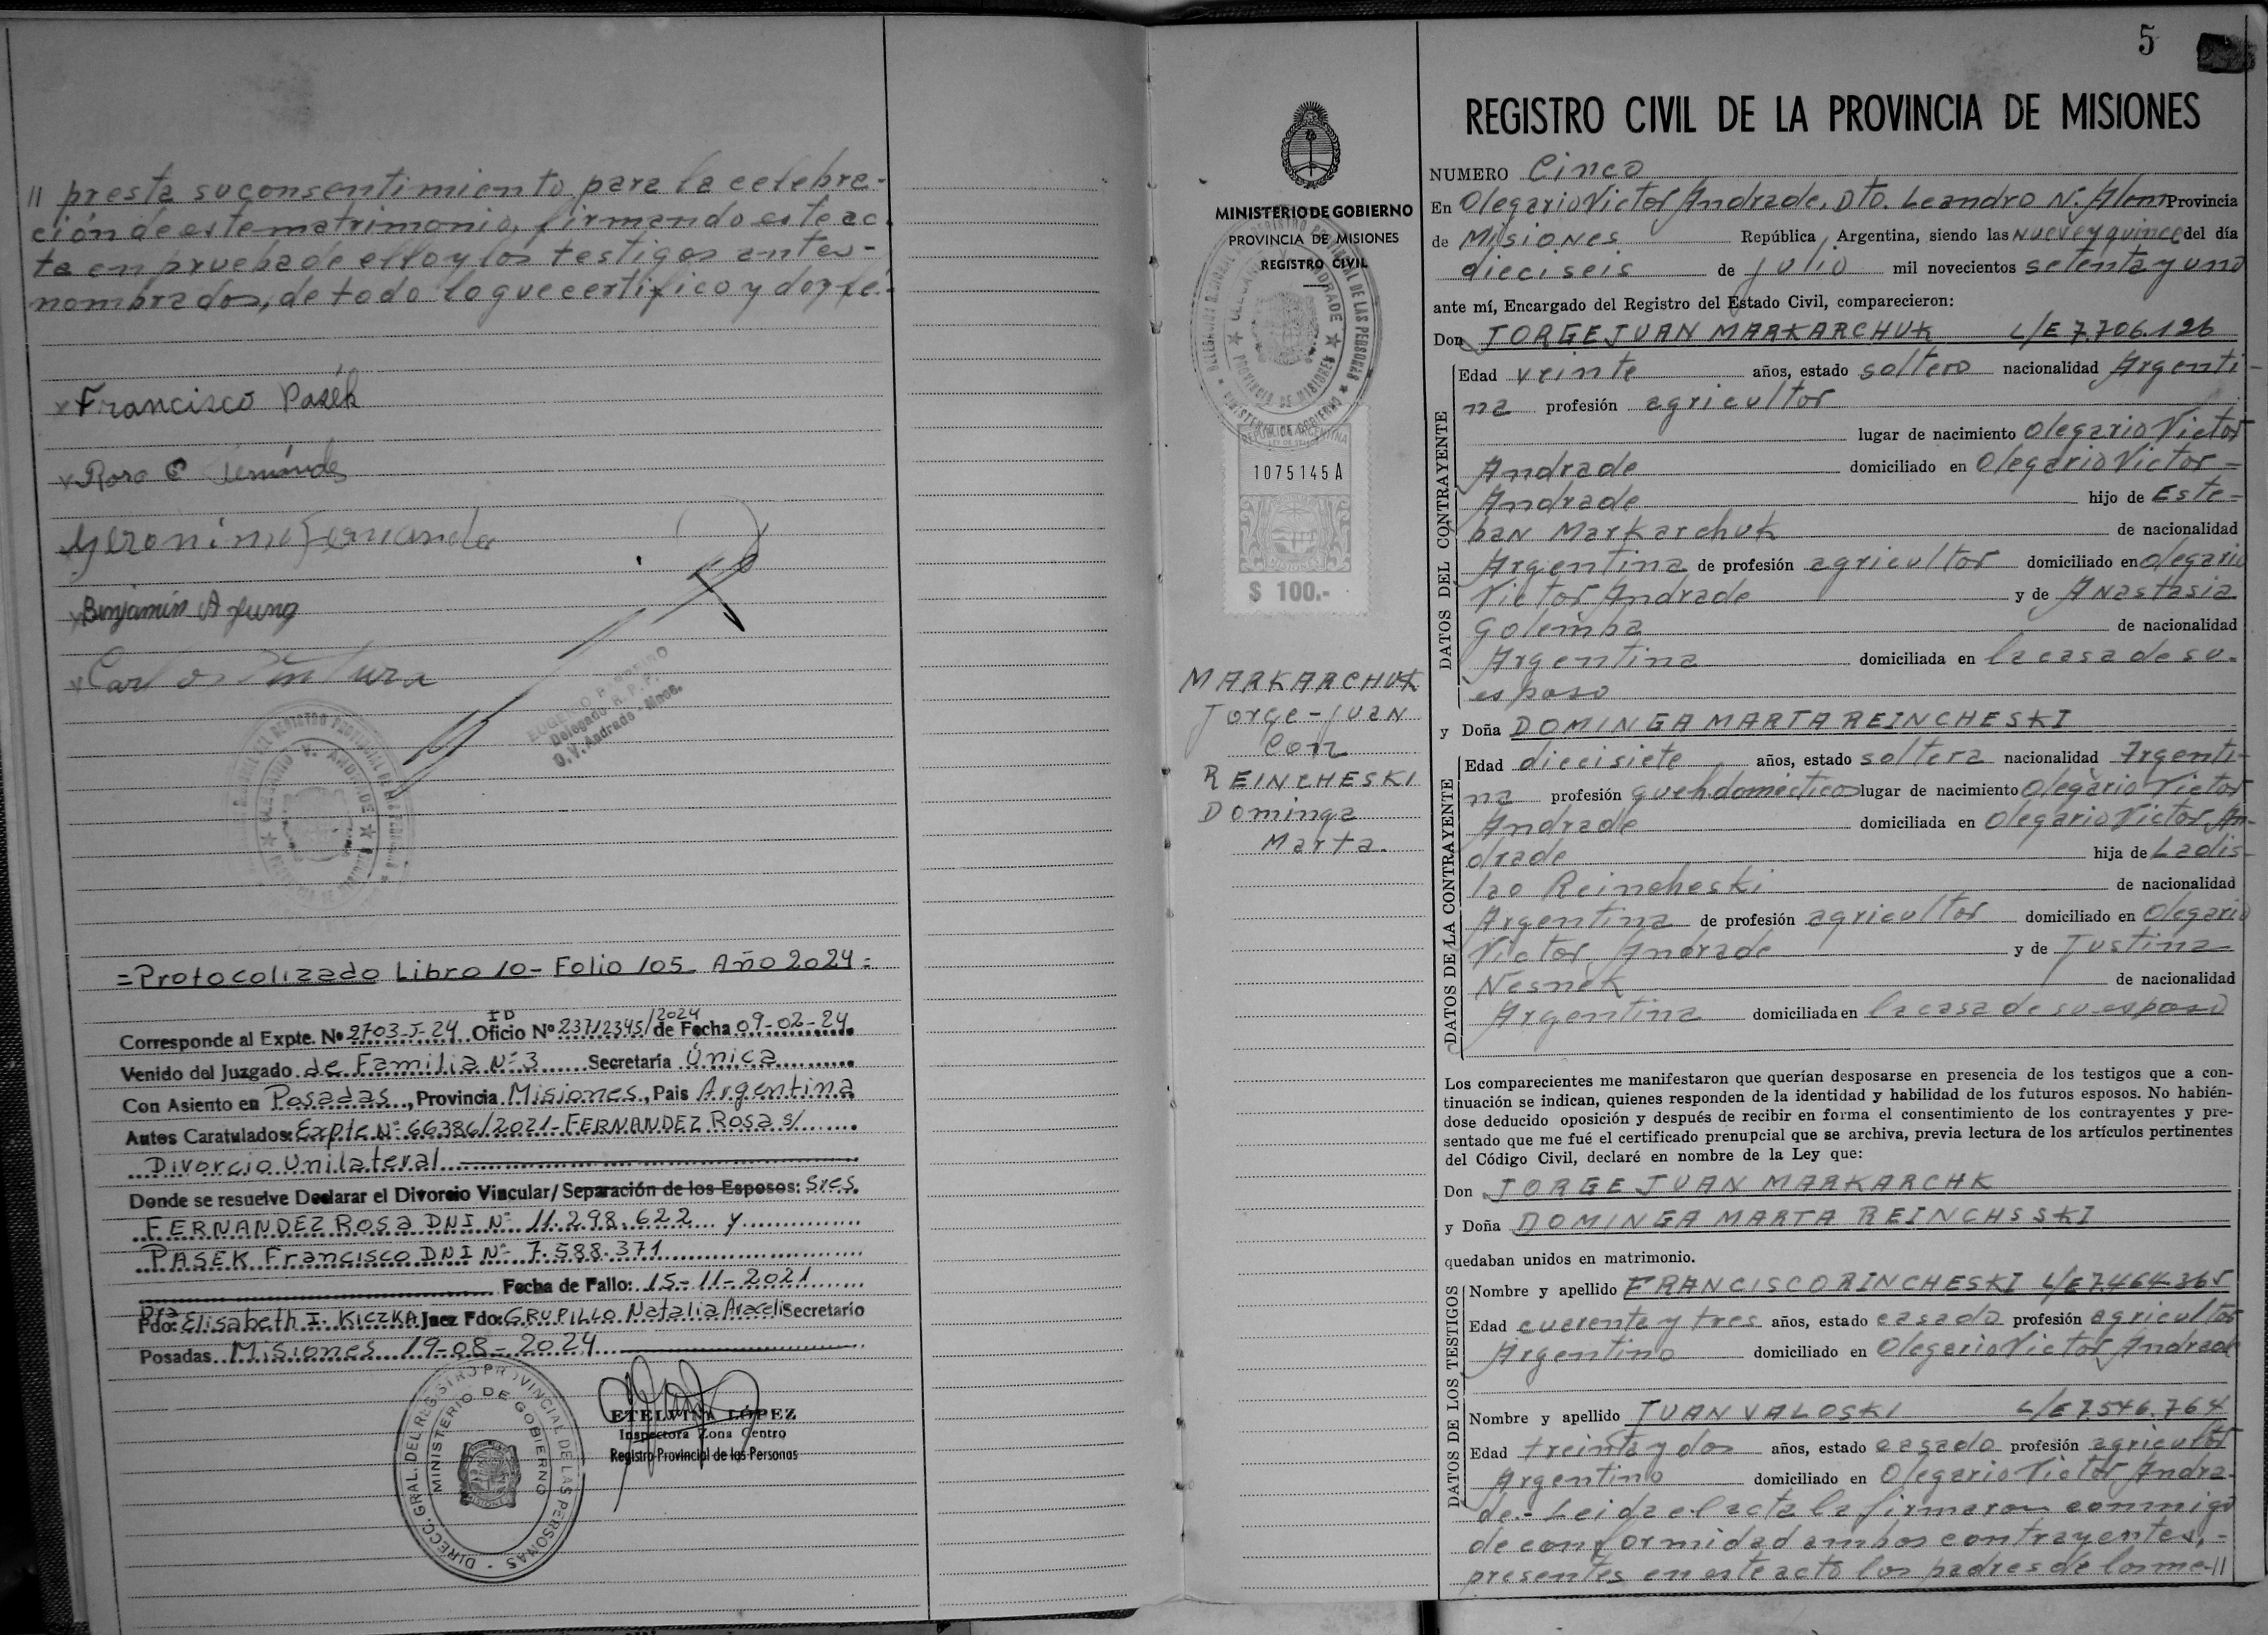 // presta su consentimiento para la celebra-
ción de este matrimonio, firmando este ac-
ta en prueba de ello y los testigos antes-
nombrados, de todo lo que certifico y doy fé.-
x Francisco Pasék
x Rosa
Geronimo Fernandez
x Benjamin A Jung
x Carlos Ventura
Delegado R. P. P.
O. V. Andrade - Mnes.
= Protocolizado Libro 10 - Folio 105 Año 2024 =
Corresponde al Expte. Nº 2703-J-24 Oficio ID Nº 23712345/2024 de Fecha 09-02-24
Venido del Juzgado de Familia Nº 3 Secretaría Única
Con Asiento en Posadas, Provincia Misiones, Pais Argentina
Autos Caratulados: Expte Nº 66386/2021 - FERNANDEZ Rosa s/
Divorcio Unilateral
Donde se resuelve Declarar el Divorcio Vincular/ Separación de los Esposos: Sres.
FERNANDEZ Rosa DNI Nº 11.298.622 y
PASEK Francisco DNI Nº 7.588.371
Fecha de Fallo: 15-11-2021
Fdo: Dra Elisabeth I. KICZKA Juez Fdo: GRUPILLO Natalia Araceli Secretario
Posadas Misiones 19-08-2024
DIRECC. GRAL. DEL REGISTRO PROVINCIAL DE LAS PERSONAS
MINISTERIO DE GOBIERNO
MISIONES
ETELVINA LÓPEZ
Inspectora Zona Centro
Registro Provincial de las Personas
MINISTERIO DE GOBIERNO
PROVINCIA DE MISIONES
REGISTRO CIVIL
REPUBLICA ARGENTINA
1075145 A
MISIONES
$ 100.-
MARKARCHUK
Jorge-Juan
Con
REINCHESKI
Dominga
Marta.
5
REGISTRO CIVIL DE LA PROVINCIA DE MISIONES
NUMERO Cinco
En Olegario Victor Andrade, Dto. Leandro N. Alem Provincia
de Misiones República Argentina, siendo las nueve y quince del día
dieciseis de julio mil novecientos setenta y uno
ante mí, Encargado del Registro del Estado Civil, comparecieron:
Don JORGE JUAN MARKARCHUK L/E 7.706.126
DATOS DEL CONTRAYENTE
Edad veinte años, estado soltero nacionalidad Argenti-
na profesión agricultor
lugar de nacimiento Olegario Victor
Andrade domiciliado en Olegario Victor -
Andrade hijo de Este-
ban Markarchuk de nacionalidad
Argentina de profesión agricultor domiciliado en Olegario
Victor Andrade y de Anastasia
Golemba de nacionalidad
Argentina domiciliada en la casa de su
esposo
y Doña DOMINGA MARTA REINCHESKI
DATOS DE LA CONTRAYENTE
Edad diecisiete años, estado soltera nacionalidad Argenti-
na profesión quehdomésticos lugar de nacimiento Olegario Victor
Andrade domiciliada en Olegario Victor An-
drade hija de Ladis-
lao Reincheski de nacionalidad
Argentina de profesión agricultor domiciliado en Olegario
Victor Andrade y de Justina
Nesnek de nacionalidad
Argentina domiciliada en la casa de su esposo
Los comparecientes me manifestaron que querían desposarse en presencia de los testigos que a con-
tinuación se indican, quienes responden de la identidad y habilidad de los futuros esposos. No habién-
dose deducido oposición y después de recibir en forma el consentimiento de los contrayentes y pre-
sentado que me fué el certificado prenupcial que se archiva, previa lectura de los artículos pertinentes
del Código Civil, declaré en nombre de la Ley que:
Don JORGE JUAN MARKARCHK
y Doña DOMINGA MARTA REINCHSSKI
quedaban unidos en matrimonio.
DATOS DE LOS TESTIGOS
Nombre y apellido FRANCISCO RINCHESKI L/E 7.464.365
Edad cuarenta y tres años, estado casado profesión agricultor
Argentino domiciliado en Olegario Victor Andrade
Nombre y apellido JUAN VALOSKI L/E 7546.764
Edad treinta y dos años, estado casado profesión agricultor
Argentino domiciliado en Olegario Victor Andra-
de.- Leida el acta la firmaron conmigo
de conformidad ambos contrayentes, -
presentes en este acto los padres de los me-//